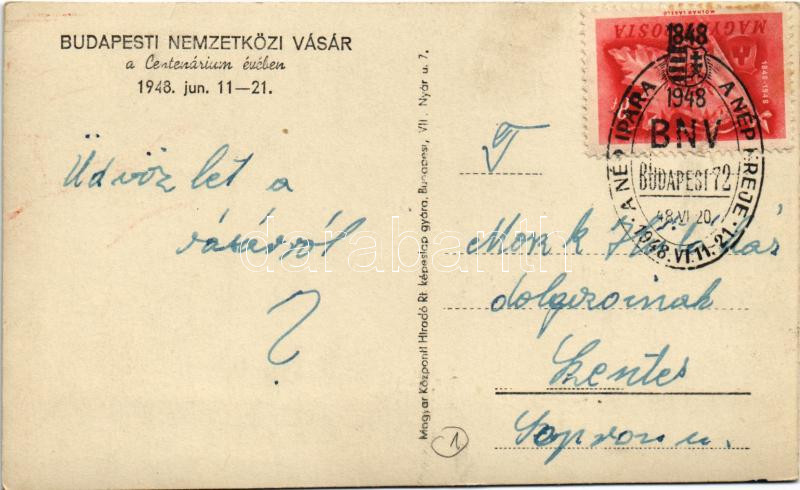 BUDAPESTI NEMZETKÖZI VÁSÁR
a Centenárium évében
1948. jun. 11—21.
Üdvözlet a
vásárról
?
Magyar Központi Híradó Rt. képeslap gyára, Budapest, VII. Nyár u. 7.
MOLNÁR LÁSZLÓ
MAGYAR POSTA
1848-1948
1848
1948
BNV
BUDAPEST 72
48.VI.20.
A NÉP IPARA A NÉP EREJE
1948.VI.11-21.
T
dolgozóinak
Szentes
Soproni u.
1
darabanth